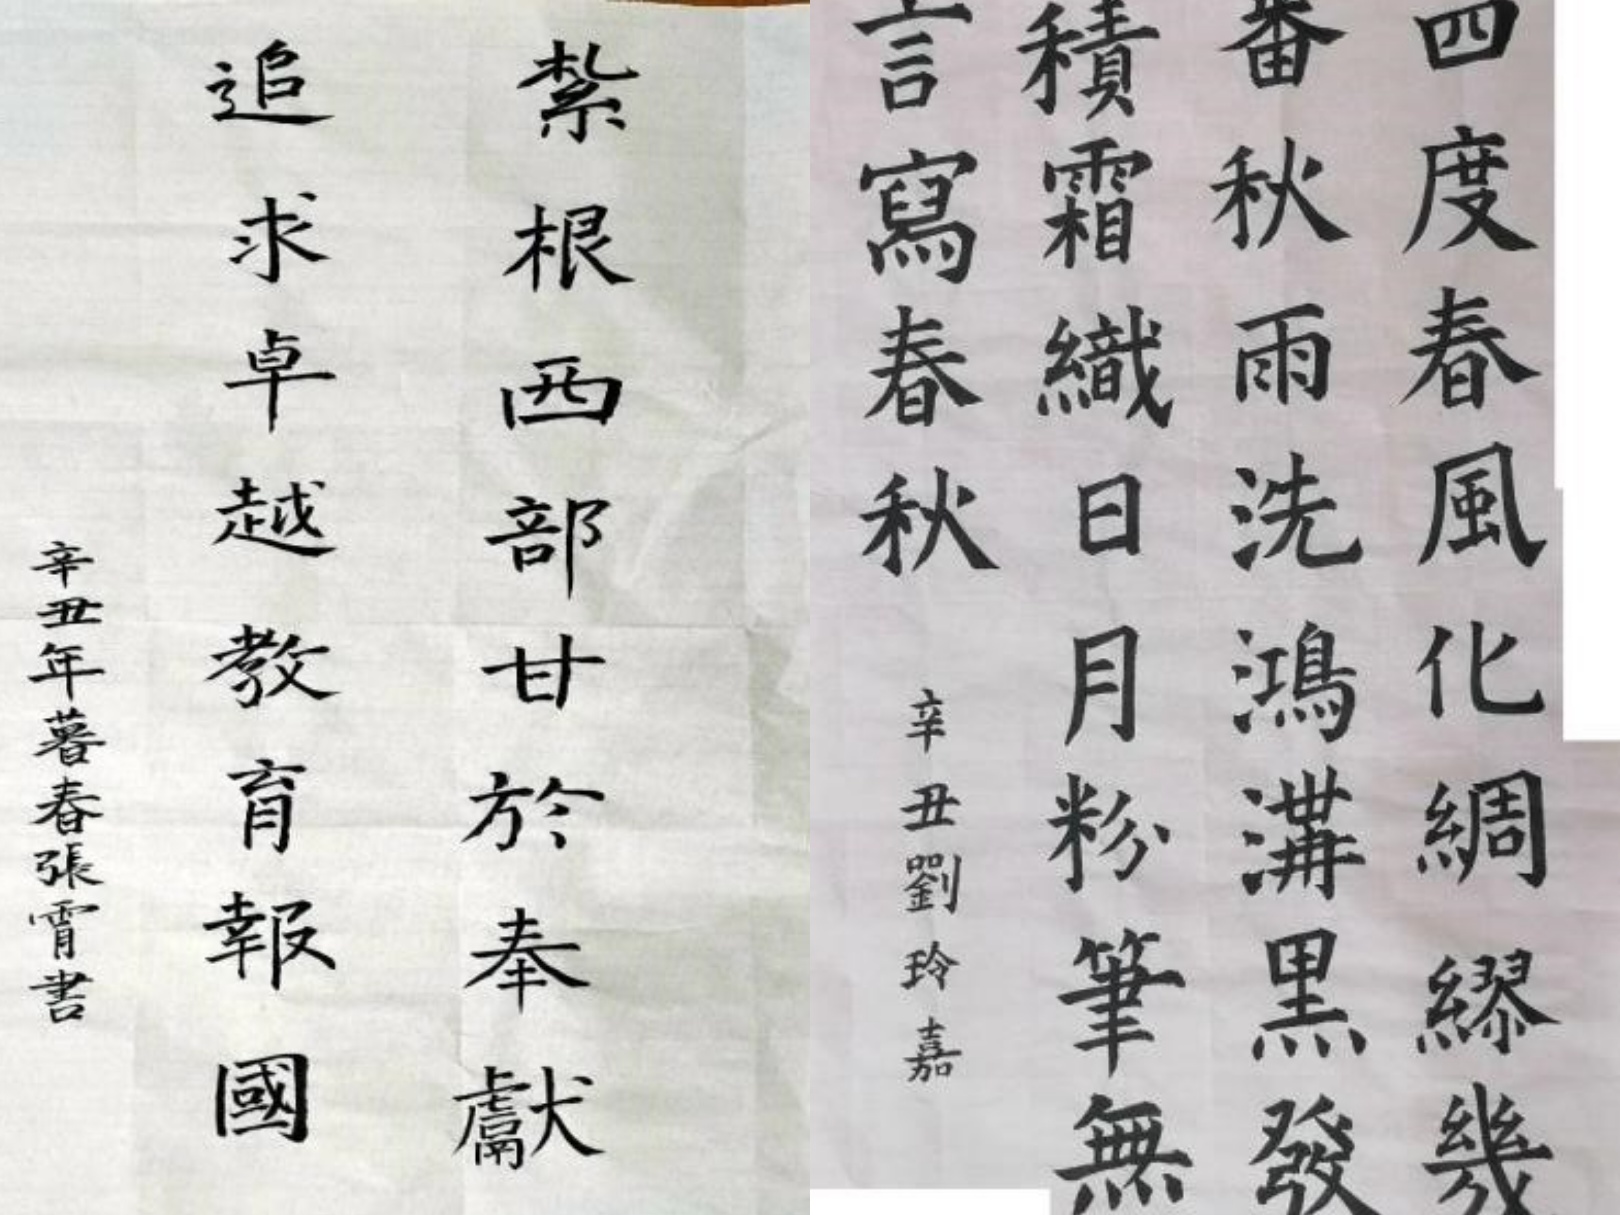 紮根西部甘於奉獻
追求卓越教育報國
辛丑年暮春張霄書
四度春風化綢繆幾
番秋雨洗鴻溝黑發
積霜織日月粉筆無
言寫春秋
辛丑劉玲嘉